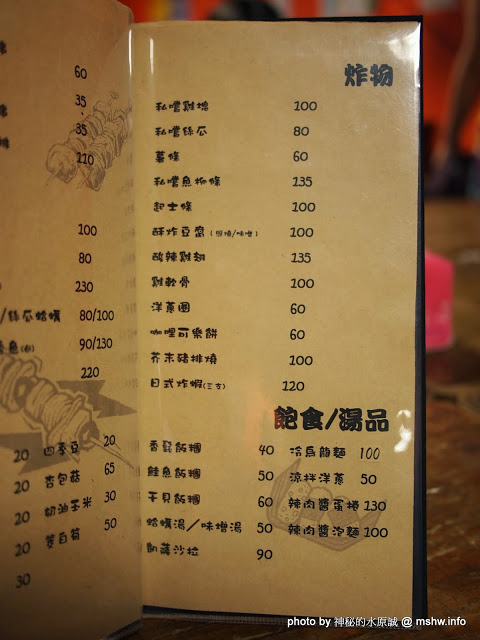 60
35
35
110
100
80
230
/絲瓜蛤蠣 80/100
90/130
220
20 四季豆 20
20 杏包菇 65
20 奶油玉米 30
20 茭白筍 50
30
炸物
私嚐雞塊 100
私嚐絲瓜 80
薯條 60
私嚐魚柳條 135
起士條 100
酥炸豆腐(照燒/味噌) 100
酸辣雞翅 135
雞軟骨 100
洋蔥圈 60
咖哩可樂餅 60
芥末豬排燒 100
日式炸蝦(三支) 120
飽食/湯品
香鬆飯糰 40 冷烏龍麵 100
鮭魚飯糰 50 涼拌洋蔥 50
干貝飯糰 60 辣肉醬蛋捲 130
蛤蠣湯/味增湯 50 辣肉醬泡麵 100
凱薩沙拉 90
photo by 神秘的水原誠 @ mshw.info